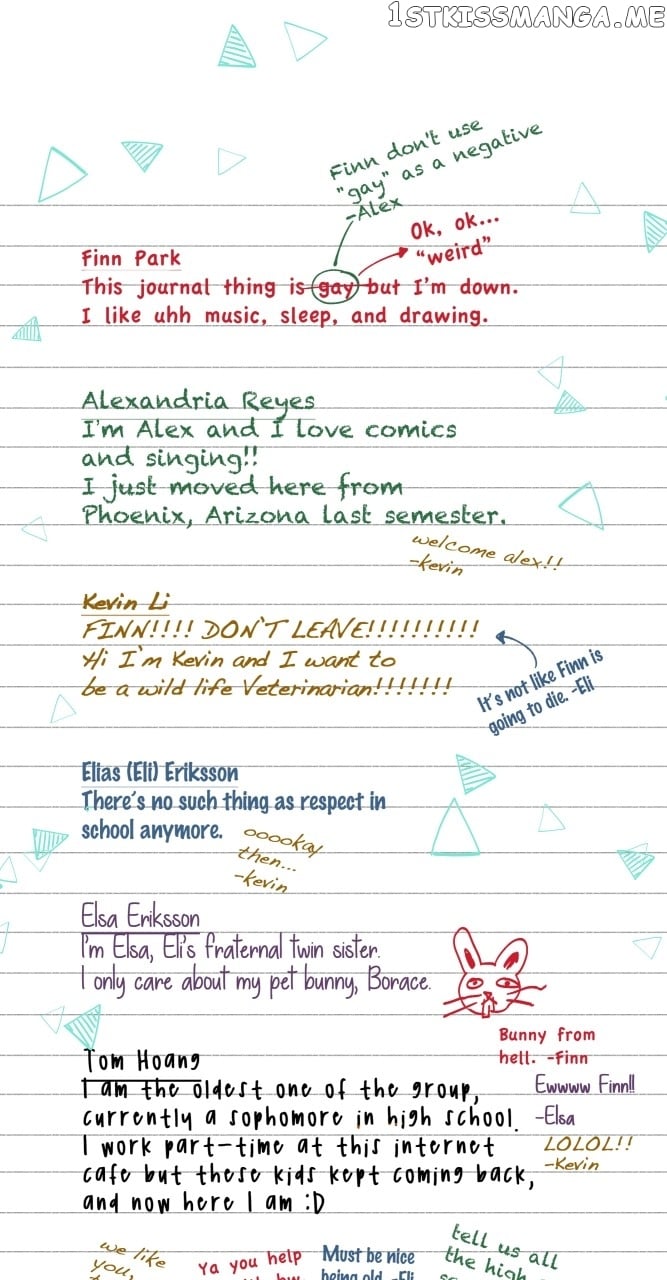 1STKISSMANGA.ME
Finn don't use
"gay" as a negative
-Alex
Ok, ok...
"weird"
Finn Park
This journal thing is gay but I'm down.
I like uhh music, sleep, and drawing.
Alexandria Reyes
I'm Alex and I love comics
and singing!!
I just moved here from
Phoenix, Arizona last semester.
welcome alex!!
-kevin
Kevin Li
FINN!!!! DON'T LEAVE!!!!!!!!!!
Hi I'm Kevin and I want to
be a wild life Veterinarian!!!!!!!
It's not like Finn is
going to die. -Eli
Elias (Eli) Eriksson
There's no such thing as respect in
school anymore.
ooookay
then...
-kevin
Elsa Eriksson
I'm Elsa, Eli's fraternal twin sister.
I only care about my pet bunny, Borace.
Bunny from
hell. -Finn
Ewwww Finn!!
-Elsa
LOLOL!!
-Kevin
Tom Hoang
I am the oldest one of the group,
currently a sophomore in high school.
I work part-time at this internet
cafe but these kids kept coming back,
and now here I am :D
we like
you,
Ya you help
Must be nice
being old -Eli
tell us all
the high